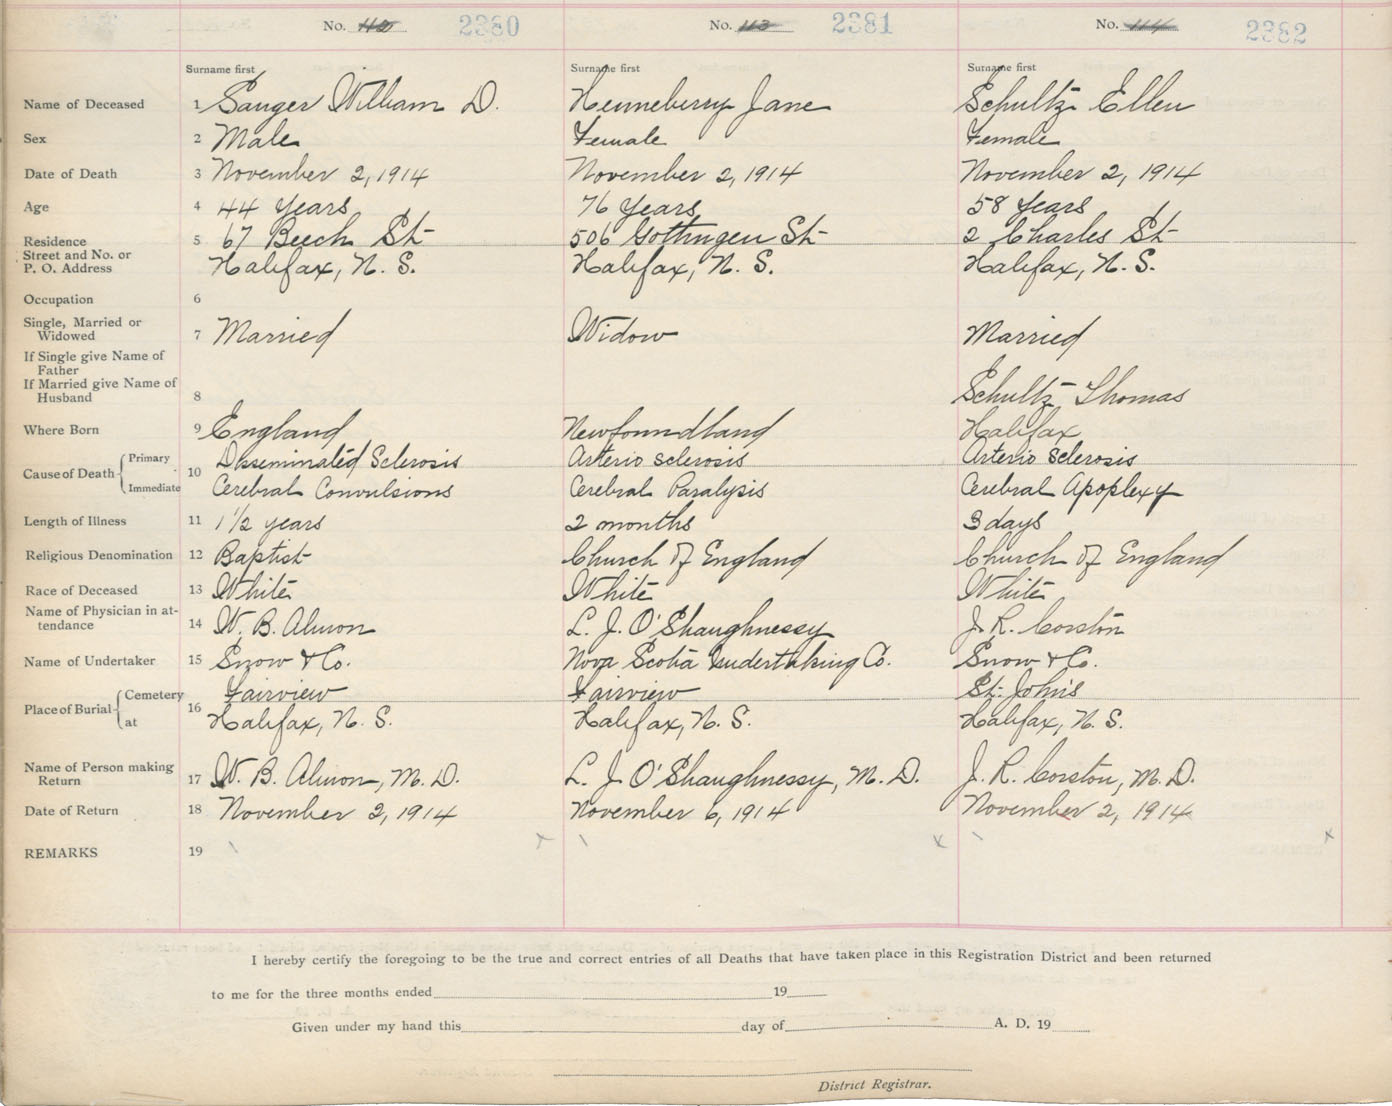 No. 2380 No. 113 2381 No. 114 2382
Surname first Surname first Surname first
Name of Deceased 1 Sauger William D. Henneberry Jane Schultz Ellen
Sex 2 Male Female Female
Date of Death 3 November 2, 1914 November 2, 1914 November 2, 1914
Age 4 44 Years 76 Years 58 Years
Residence 5 67 Beech St 506 Gottingen St 2 Charles St
Street and No. or
P. O. Address Halifax, N. S. Halifax, N. S. Halifax, N. S.
Occupation 6
Single, Married or
Widowed 7 Married Widow Married
If Single give Name of
Father
If Married give Name of
Husband 8 Schultz Thomas
Where Born 9 England Newfoundland Halifax
Cause of Death Primary 10 Disseminated Sclerosis Arterio sclerosis Arterio Sclerosis
Immediate Cerebral Convulsions Cerebral Paralysis Cerebral Apoplexy
Length of Illness 11 1 1/2 years 2 months 3 days
Religious Denomination 12 Baptist Church of England Church of England
Race of Deceased 13 White White White
Name of Physician in at-
tendance 14 W. B. Almon L. J. O'Shaughnessy J. R. Corston
Name of Undertaker 15 Snow & Co. Nova Scotia Undertaking Co. Snow & Co.
Place of Burial Cemetery 16 Fairview Fairview St. John's
at Halifax, N. S. Halifax, N. S. Halifax, N. S.
Name of Person making
Return 17 W. B. Almon, M. D. L. J. O'Shaughnessy, M. D. J. R. Corston, M. D.
Date of Return 18 November 2, 1914 November 6, 1914 November 2, 1914
REMARKS 19
I hereby certify the foregoing to be the true and correct entries of all Deaths that have taken place in this Registration District and been returned
to me for the three months ended 19
Given under my hand this day of A. D. 19
District Registrar.